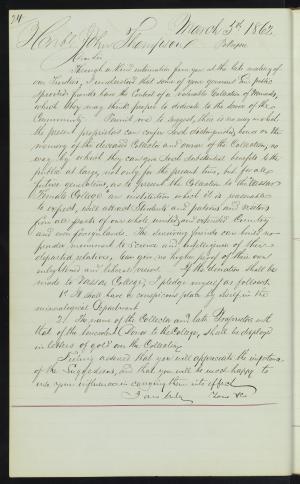 March 5th 1862.
John Thompson
Dear Sir
Through a kind intimation from you at the late meeting of
our Trustees, I understand that some of your generous & public
spirited friends have the Control of a valuable Collection of Minerals,
which they may think proper to dedicate to the use of the
Community. Permit me to suggest, there is no way in which
the present proprietors can confer such distinguished honor on the
memory of the deceased Collector and owner of the Collection, no
way by which they can give such substantial benefits to the
public at large, not only for the present time, but for all
future generations, as to present the Collection to the Vassar
Female College: an institution which it is reasonable
to expect, will attract Students and patrons and visitors
from all parts of our whole united and extended Country
and even foreign lands. The surviving friends can build no
prouder monument to Science and intelligence of their
departed relatives, can give no higher proof of their own
enlightened and liberal views. If the donation shall be
made to Vassar College, I pledge myself as follows:
1st It shall have a conspicuous place by itself in the
mineralogical Department
2d The name of the Collector and late Proprietor and
that of the benevolent Donor to the College, shall be displayed
in letters of gold on the Collection.
Feeling assured that you will appreciate the importance
of the Suggestions, and that you will be most happy to
use your influence in carrying them into effect
I am truly Yours &c